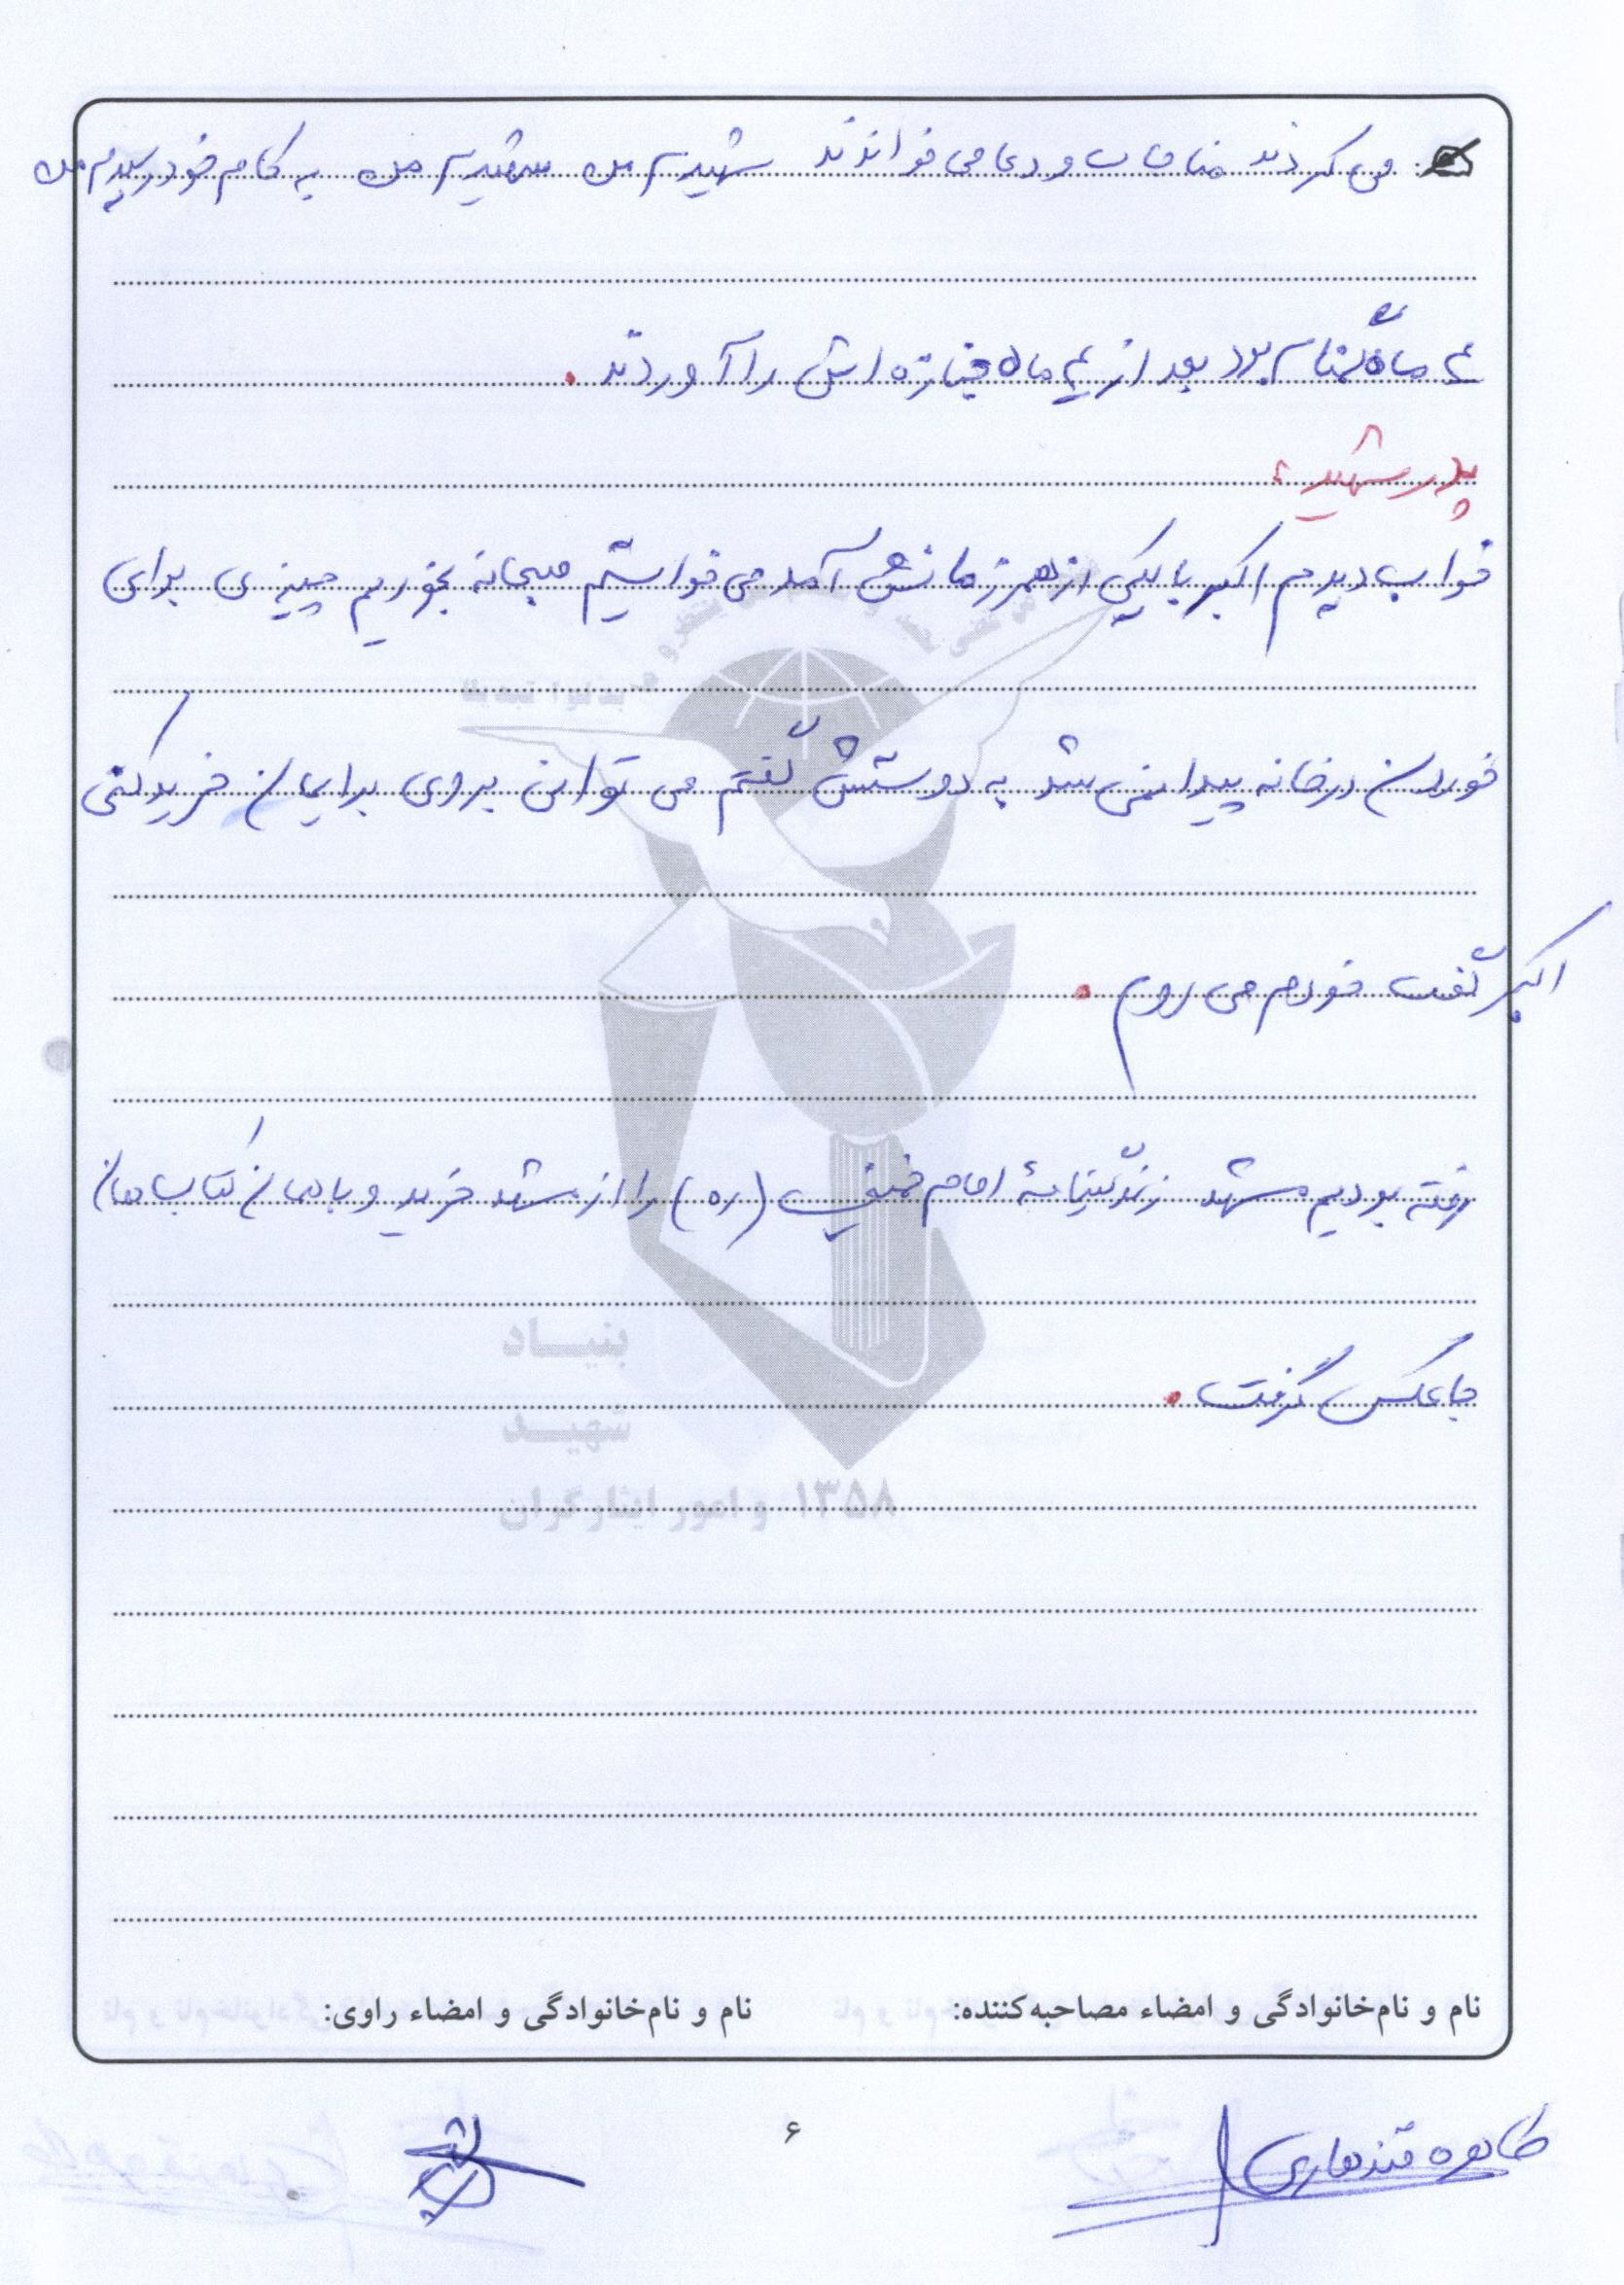 می کردند مناجات و دعا می خواندند شهیدم من شهیدم من به کام خود رسیدم من
۴ ماه گمنام بود بعد از ۴ ماه جنازه اش را آوردند.
پدر شهید:
خواب دیدم اکبر با یکی از همرزمانش آمد می خواستیم صبحانه بخوریم چیزی برای
خوردن در خانه پیدا نمی شد به دوستش گفتم می توانی بروی برایمان خرید کنی
اکبر گفت خودم می روم.
رفته بودیم مشهد زندگینامهٔ امام خمینی (ره) را از مشهد خرید و با همان کتاب همان
جا عکس گرفت.
بنیاد
شهید
۱۳۵۸ و امور ایثارگران
نام و نام‌خانوادگی و امضاء مصاحبه‌کننده: نام و نام‌خانوادگی و امضاء راوی:
طاهره قندهاری
۶